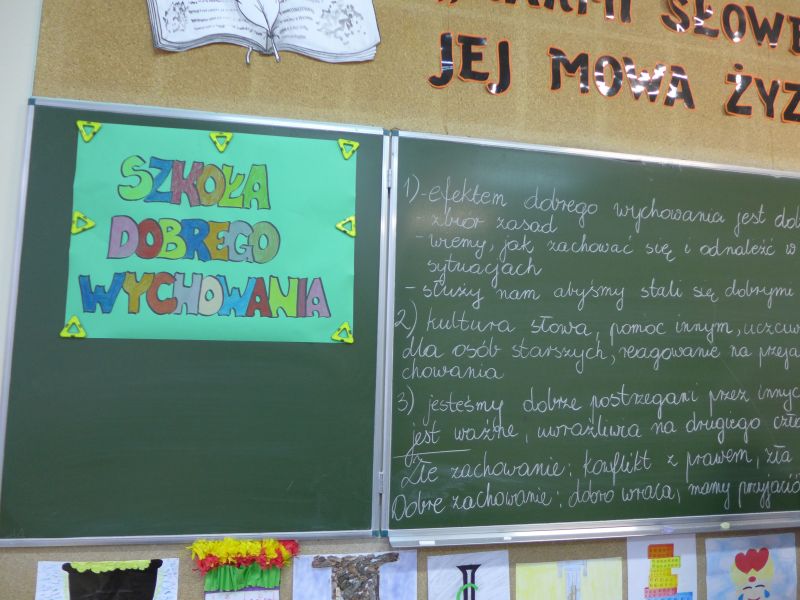 SŁOWE
JEJ MOWA ŻYZ
SZKOŁA
DOBREGO
WYCHOWANIA
1) - efektem dobrego wychowania jest dob
- zbiór zasad
- wiemy, jak zachować się i odnaleźć w
sytuacjach
- służy nam abyśmy stali się dobrymi
2) kultura słowa, pomoc innym, uczciw
dla osób starszych, reagowanie na przeja
chowania
3) jesteśmy dobrze postrzegani przez innyc
jest ważne, uwrażliwia na drugiego czło
Złe zachowanie: konflikt z prawem, zła
Dobre zachowanie: dobro wraca, mamy przyjació